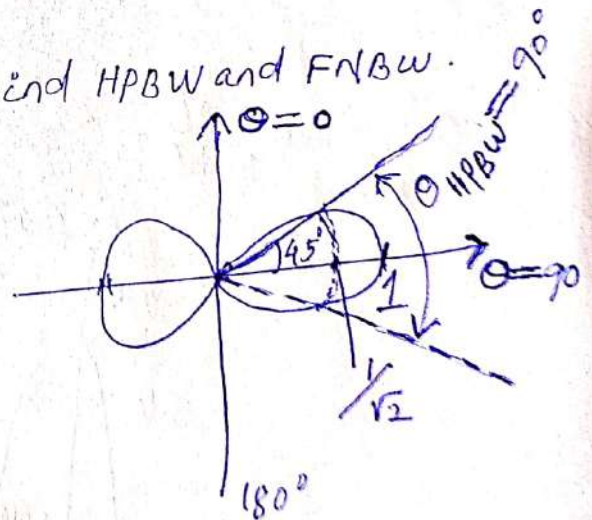 ind HPBW and FNBW.
θ=0
θHPBW = 90°
45°
θ=90
1
1/√2
180°